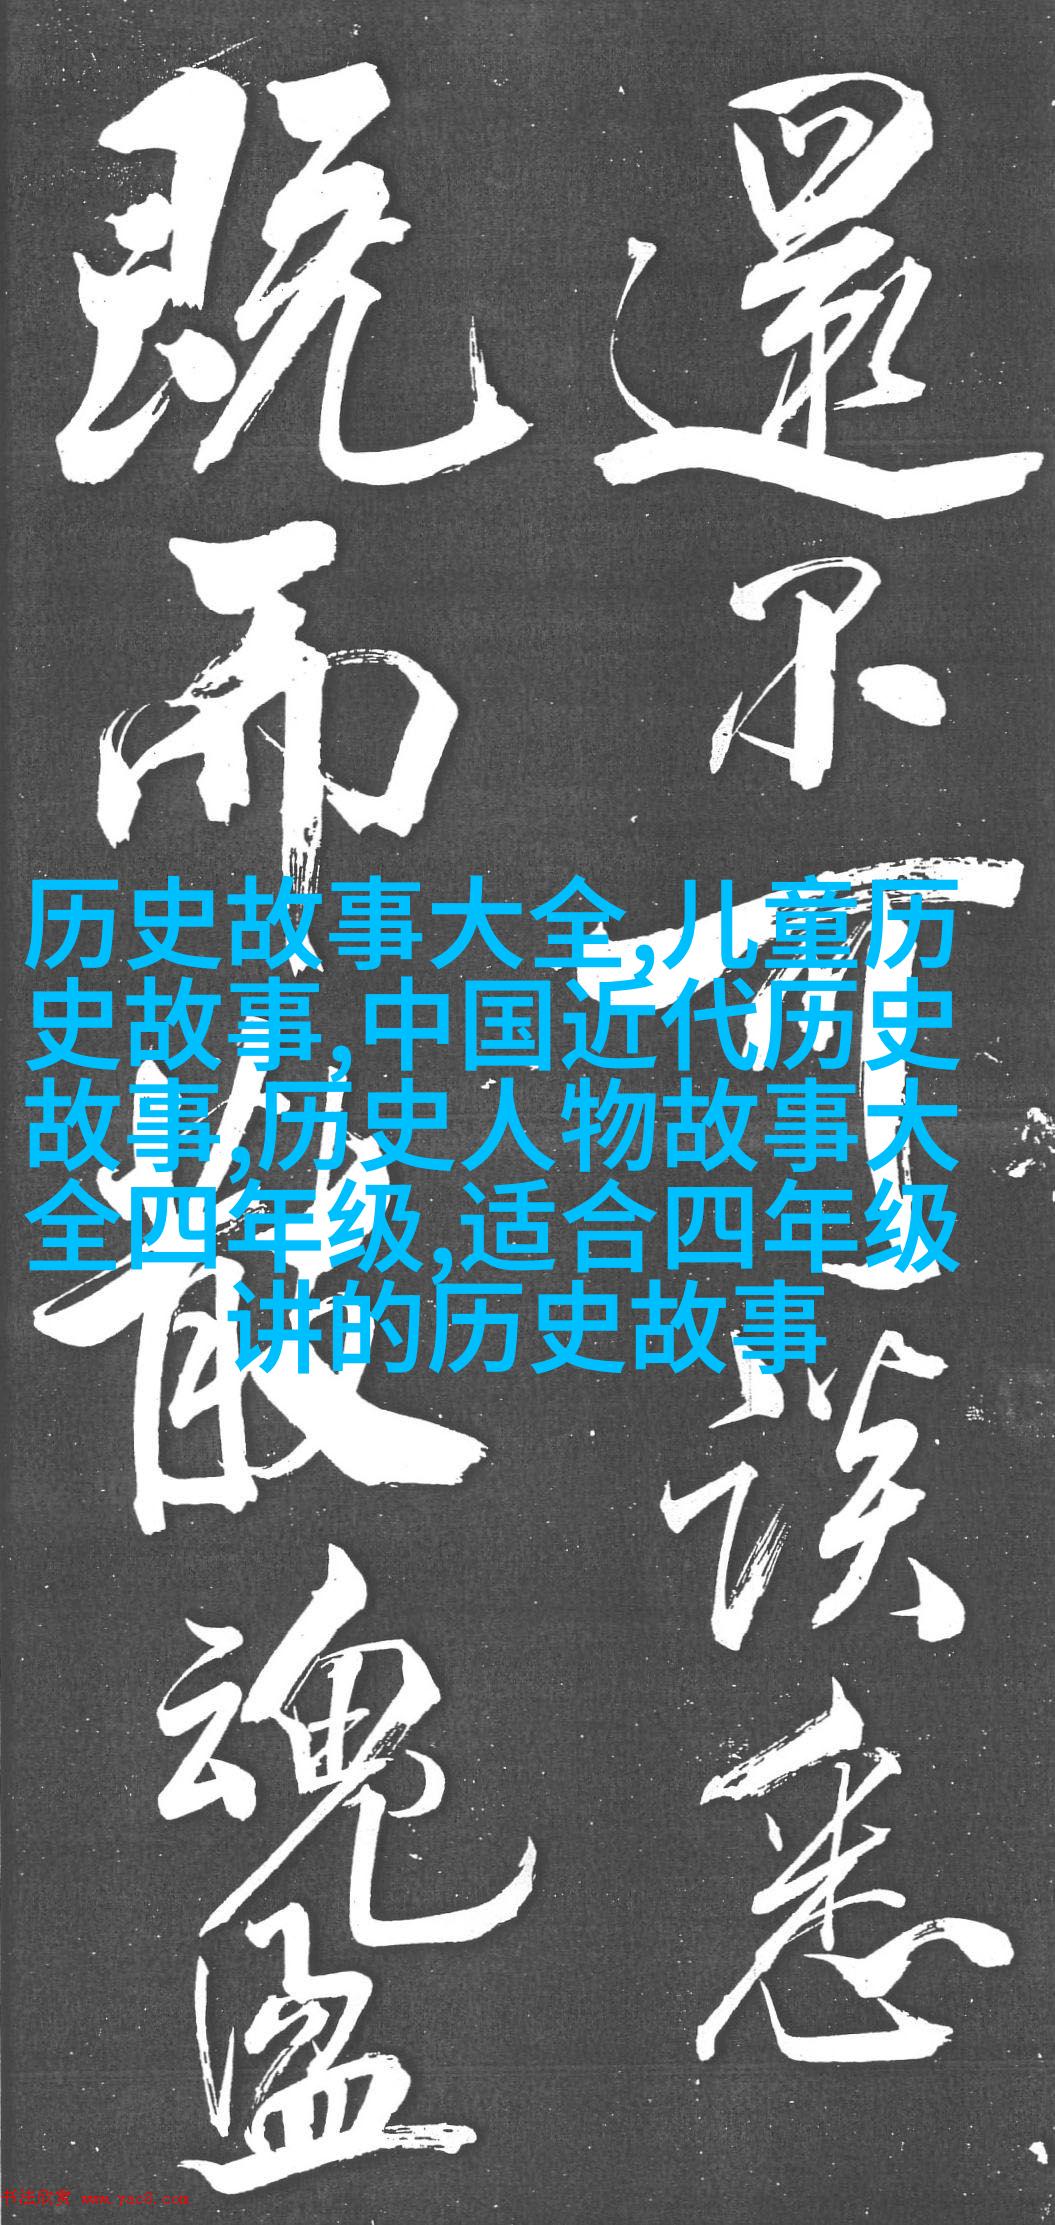 還不可談悉
既而散魂
历史故事大全,儿童历
史故事,中国近代历史
故事,历史人物故事大
全四年级,适合四年级
讲的历史故事
书法欣赏 www.yac8.com